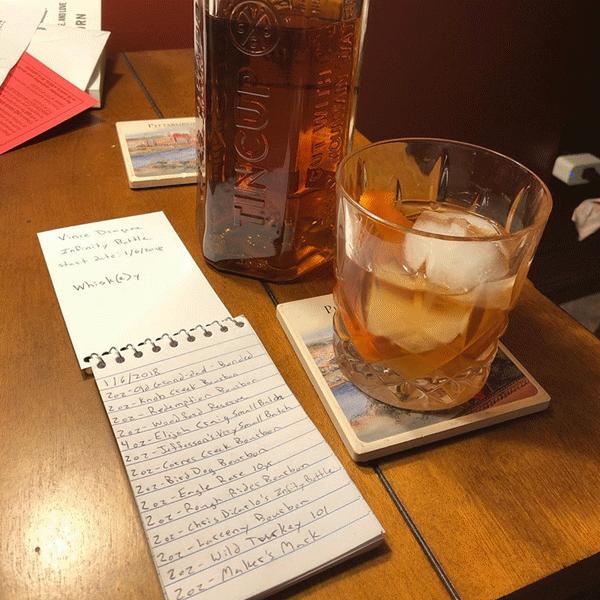 AND LOVE
RN
PITTSBURGH
TINCUP
CUT WITH
MOUNTAIN WATER
Infinity Bottle
start date: 1/6/2018
Whisk(e)y
1/6/2018
2oz - Old Grand-dad - Bonded
2oz - Knob Creek Bourbon
2oz - Redemption Bourbon
2oz - Woodford Reserve
4oz - Elijah Craig Small Batch
2oz - Jefferson's Very Small Batch
2oz - Coopers Creek Bourbon
2oz - Bird Dog Bourbon
2oz - Eagle Rare 10yr
2oz - Rough Rider Bourbon
2oz - Chris DiCarlo's Infinity Bottle
2oz - Larceny Bourbon
2oz - Wild Turkey 101
2oz - Maker's Mark